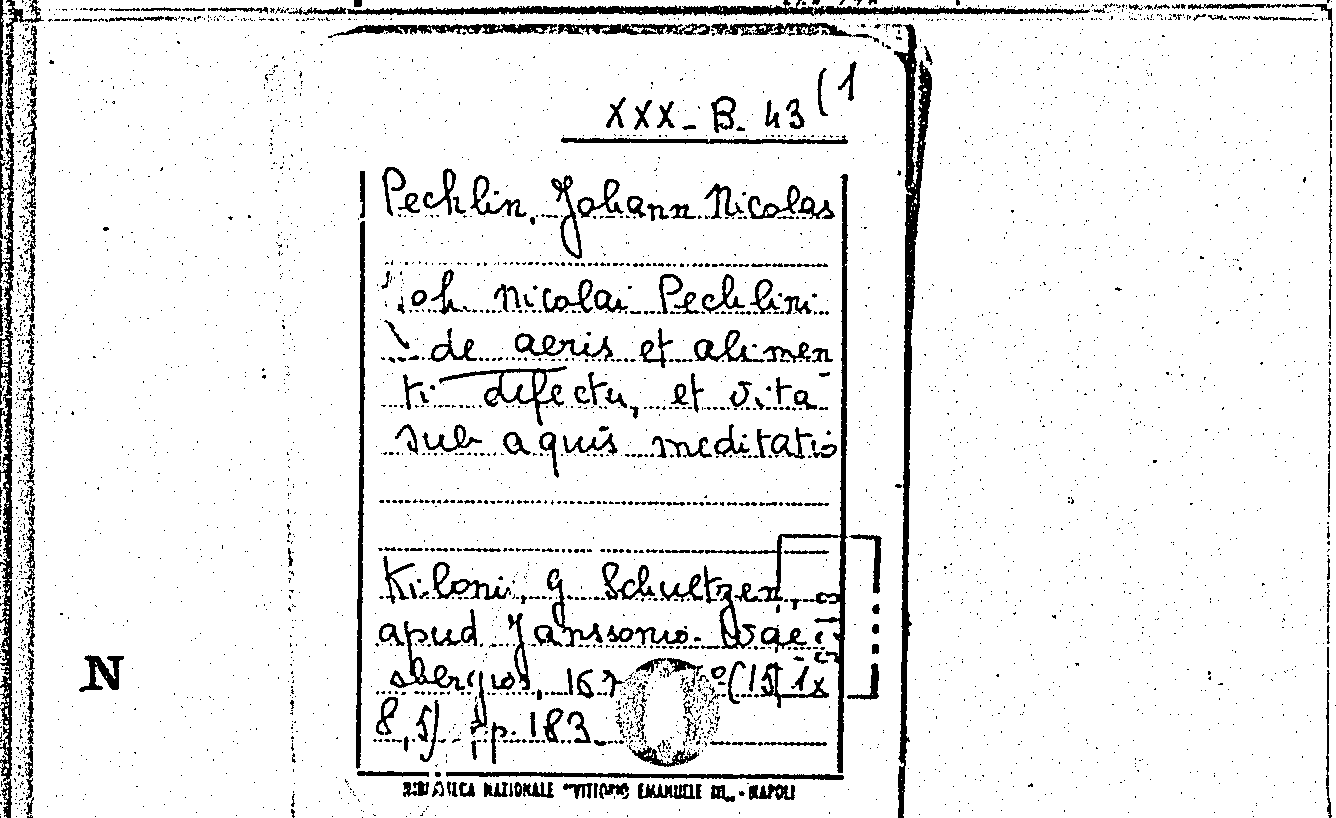 XXX-B-43 (1
Pechlin, Johann Nicolas
Joh Nicolai Pechlini
de aeris et alimen
ti defectu, et vita
sub aquis meditatio
Kiloni, g Schultzen,
apud Janssonio-Wae
sbergios, 167 °(15,1x
8,5) pp. 183
N
BIBLIOTECA NAZIONALE "VITTORIO EMANUELE III" - NAPOLI